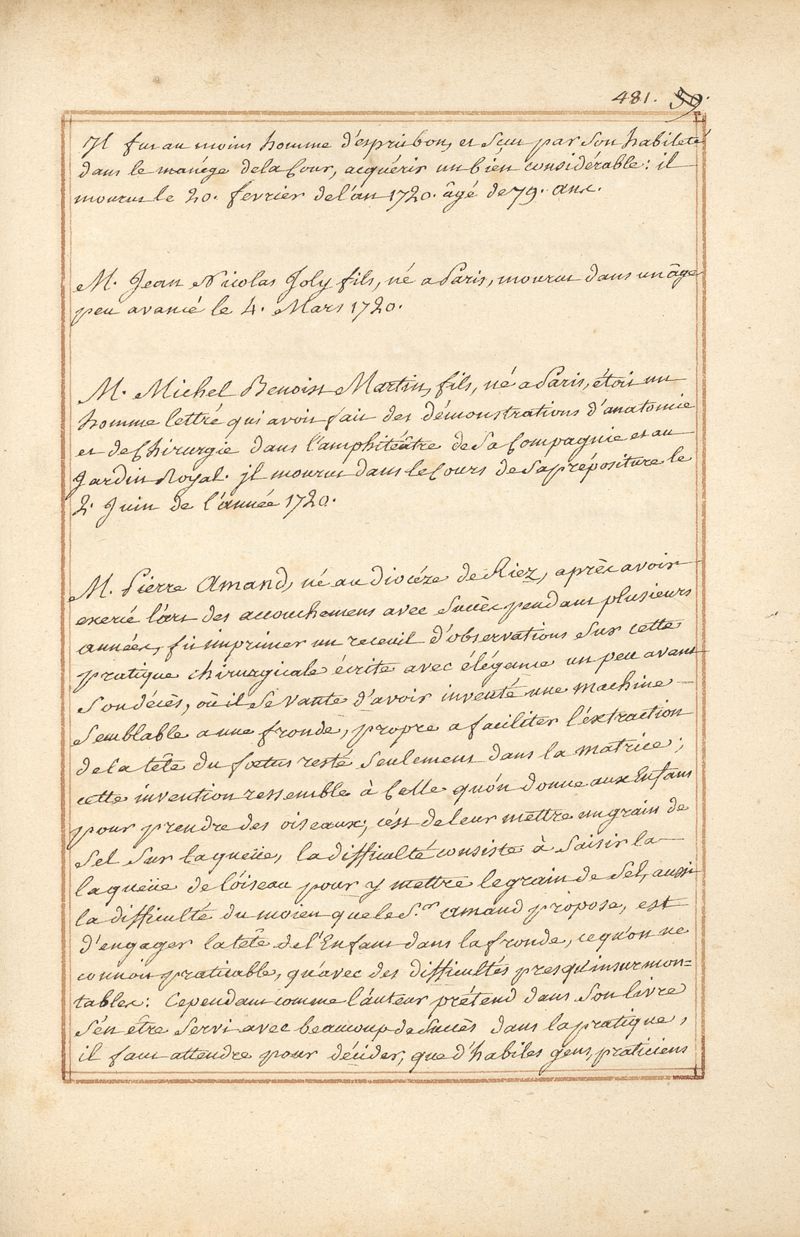 481. 39.
Il fut au moins homme d'esprit bon, et Sçut par Son habileté
dans le manége dela Cour, acquérir un bien considérable: il
mourut le 20. fevrier del'an 1720. âgé de 79. ans.
M. Jean Nicolas Joly fils, né a Paris, mourut dans un âge
peu avancé le 4. Mars 1720.
M. Michel Benoist Martin, fils, né a Paris, étoit un
homme lettré qui avoit fait des démonstrations d'anatomie
et de Chirurgie dans l'amphitéâtre de Sa Compagnie et au
Jardin Royal. jl mourut dans le Cours de Sa prépositure le
2. Juin de l'année 1720.
M. Pierre Amand, né au diocéze de Riez, aprés avoir
exercé l'art des accouchemens avec Succès pendant plusieurs
années, fit imprimer un receuil d'observations Sur cette
pratique chirurgicale écrite avec élégance un peu avant
Son décès, où il Se vante d'avoir inventé une machine
Semblable a une fronde, propre a faciliter l'éxtraction
de la tête du foetus resté Seulement dans la matrice;
cette invention ressemble à Celle qu'ón donne aux Enfans
pour prendre des oiseaux; c'ést de leur mettre un grain de
Sel Sur la queüe, la difficulté consiste à Saisir la
la queüe de l'óiseau pour y mettre le grain de Sel, aussi
la difficulté du moien que le S.r Amand propose, est
d'engager la tête de l'Enfant dans la fronde, ce qu'on ne
connoit praticable, qu'avec des difficultés presqu'insurmon=
tables: Cependant comme l'áuteur prétend dans Son livre
S'én être Servi avec beaucoup de Succès dans la pratique,
il faut attendre pour décider, que d'habiles gens, praticiens